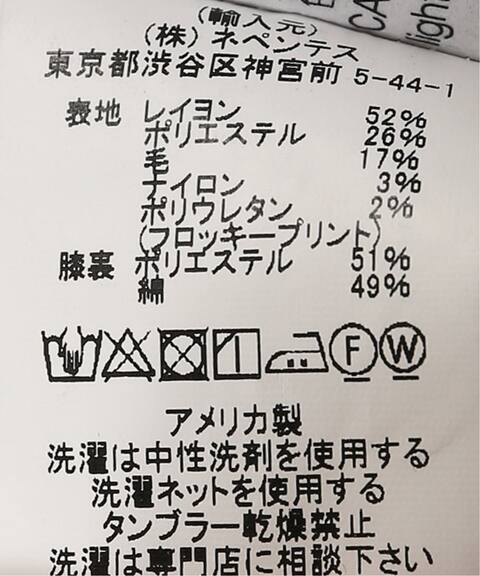 CA
light
(輸入元)
(株) ネペンテス
東京都渋谷区神宮前 5-44-1
表地 レイヨン 52%
ポリエステル 26%
毛 17%
ナイロン 3%
ポリウレタン 2%
(フロッキープリント)
膝裏 ポリエステル 51%
綿 49%
F W
アメリカ製
洗濯は中性洗剤を使用する
洗濯ネットを使用する
タンブラー乾燥禁止
洗濯は専門店に相談下さい